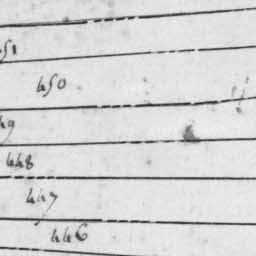 451
450
449
448
447
446